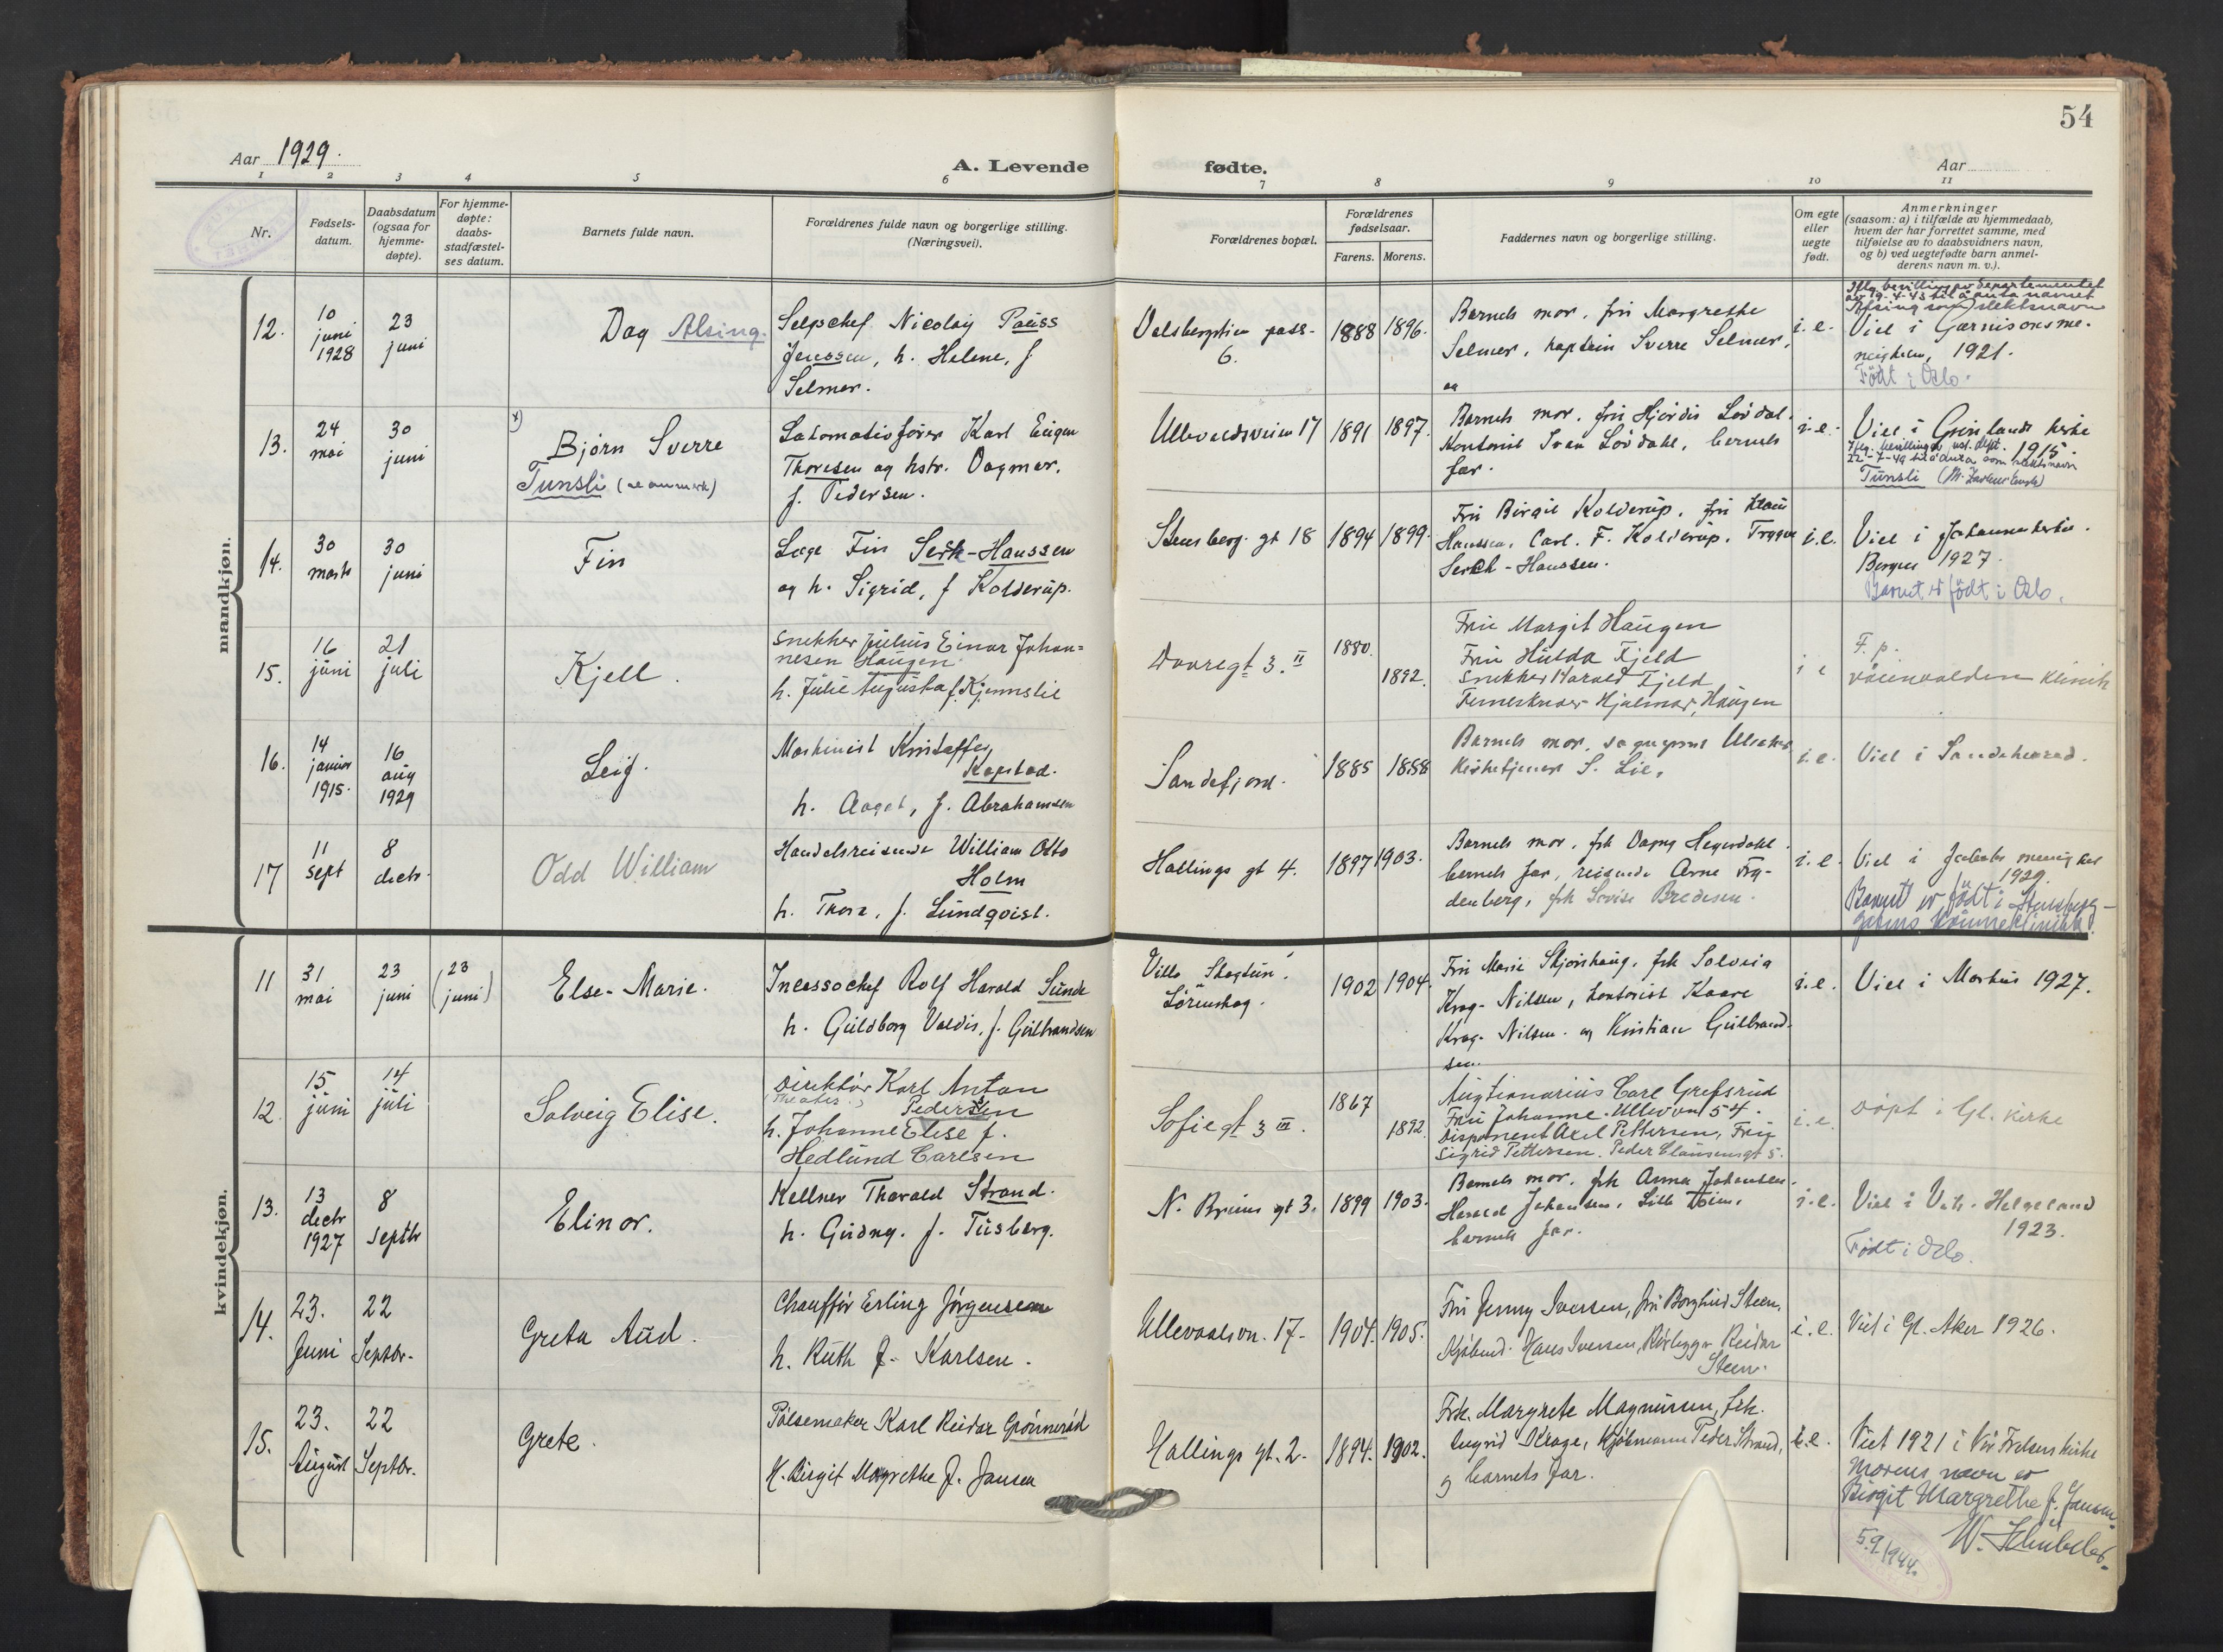 54
Aar 1929.
A. Levende
fødte.
Aar
1 2 3 4 5 6 7 8 9 10 11
Nr.
Fødsels-
datum.
Daabsdatum
(ogsaa for
hjemme-
døpte).
For hjemme-
døpte:
daabs-
stadfæstel-
ses datum.
Barnets fulde navn.
Forældrenes fulde navn og borgerlige stilling.
(Næringsvei).
Forældrenes bopæl.
Forældrenes
fødselsaar.
Farens. Morens.
Faddernes navn og borgerlige stilling.
Om egte
eller
uegte
født.
Anmerkninger
(saasom: a) i tilfælde av hjemmedaab,
hvem der har forrettet samme, med
tilføielse av to daabsvidners navn,
og b) ved uegtefødte barn anmel-
derens navn m. v.).
mandkjøn.
12.
10
juni
1928
23
juni
Dag Alsing.
Selpschef Nicolay Pauss
Jenssen, h. Helene, f
Selmer.
6.
1888 1896.
Barnets mor, fru Margrethe
Selmer, kaptein Sverre Selmer,
og
i. e.
Iflg. bevilling av departementet
av 19-4-43 til å anta navnet
Alsing som slektsnavn
Viet i Garnisonsme-
nigheten, 1921.
Født i Oslo.
13.
24
mai
30
juni
x)
Bjørn Sverre
Tunsli (se anmerk)
Lokomotivfører Karl Eugen
Thoresen og hstr. Dagmar,
f. Pedersen.
Ullevoldsveien 17
1891 1897.
Barnets mor, fru Hjørdis Løvdal.
Kontorist Løvdahl, barnets
far.
i. e.
Viet i Grønlands kirke
1915.
22-7-49 til å anta som slektsnavn
Tunsli
14.
30
marts
30
juni
Fin
Læge Fin Serk-Hanssen
og h. Sigrid, f Kolderup.
Stensberg. gt 18
1894 1899.
Fru Birgit Kolderup, fru Klara
Hanssen, Carl. F. Kolderup, Trygve
Serck-Hanssen.
i. e.
Viet i Johanneskirken.
Bergen 1927.
Barnet er født i Oslo.
15.
16
juni
21
juli
Kjell.
Snekker Julius Einar Johan=
nesen Haugen
h. Julie Augusta f. Kjennslie
Dovregt 3. II
1880.
1892.
Fru Margit Haugen
Fru Hulda Fjeld
Snekker Harald Fjeld
Hjalmar Haugen
i e
F. p.
klinik
16.
14
januar
1915.
16
aug
1929
Leif.
Maskinist Kristoffer
Kopstad.
h. Aagot, f. Abrahamsen
Sandefjord.
1885 1888
Barnets mor, sogneprest
Kirketjener S. Lie,
i. e.
Viet i Sandeherred.
17
11
sept
8
decbr.
Odd William
Handelsreisende William Otto
Holm
h. Thora, f. Lundqvist.
Hallings gt 4.
1897 1903.
Barnets mor, frk Dagny Hegerdahl.
barnets far, reisende Arne Fry-
denberg, frk Lovise Bredesen.
i. e.
Viet i Jakobs menighet
1929.
Barnet er født i
kvindekjøn.
11
31
mai
23
juni
(23
juni)
Else-Marie.
Incassochef Rolf Harald Sunde
h. Guldborg Valdis, f. Gulbrandsen
Villa Skogtun,
Lørenskog.
1902 1904.
Fru Marie Skjorshaug, frk Solveig
Krag-Nilsen, kontorist Kaare
Krag-Nilsen. og Kristian Gulbrand-
sen.
i. e.
Viet i Markus 1927.
12.
15
juni
14
juli
Solveig Elise.
Direktør Karl Anton
(Theater.) Pedersen
h. Johanne Elise f.
Hedlund Carlsen
Sofiegt 3 III.
1867
1892.
Augtionarius Carl Grefsrud
Fru Johanne. Ullevon 54.
Disponent Axel Pettersen, Fru
Sigrid Pettersen. Peder Clausensgt 5.
i. e.
Døpt i Gl. kirke
13.
13
decbr
1927
8
septbr
Elinor.
Kellner Thorvald Strand.
h. Gudny. f. Tusberg.
N. Bruns gt 3.
1899 1903.
Barnets mor, frk Anna Johansen.
Harald Johansen,
barnets far.
i. e.
Viet i Helgeland
1923.
Født i Oslo.
14.
23.
Juni
22
Septbr.
Greta Aud.
Chauffør Erling Jørgensen
h. Ruth f. Karlsen.
Ullevaalsvn. 17.
1904. 1905.
Fru Jenny Iversen, fru Borghild Steen,
Kjøbmd. Hans Iversen, Reidar
Steen.
i. e.
Viet i Gl. Aker 1926.
15.
23.
August
22
Septbr.
Grete.
Pølsemaker Karl Reidar Grønnerød
H. Birgit Magrethe f. Jansen
Hallings gt. 2.
1894. 1902.
Frk. Margrete Magnussen, frk.
Ingrid Krage, Kjøbmann Peder Strand,
og barnets far.
i. e.
Viet 1921 i Vor Frelsers kirke
Morens navn er
Birgit Margrethe f. Jansen.
5.9.1944.